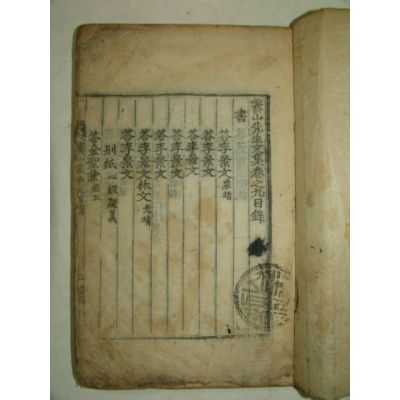 雲山先生文集卷之九目錄
書
答李景文
答李景文
答李景文
答李景文
答李景文
答李景文休文
別紙心經疑義
答金聖